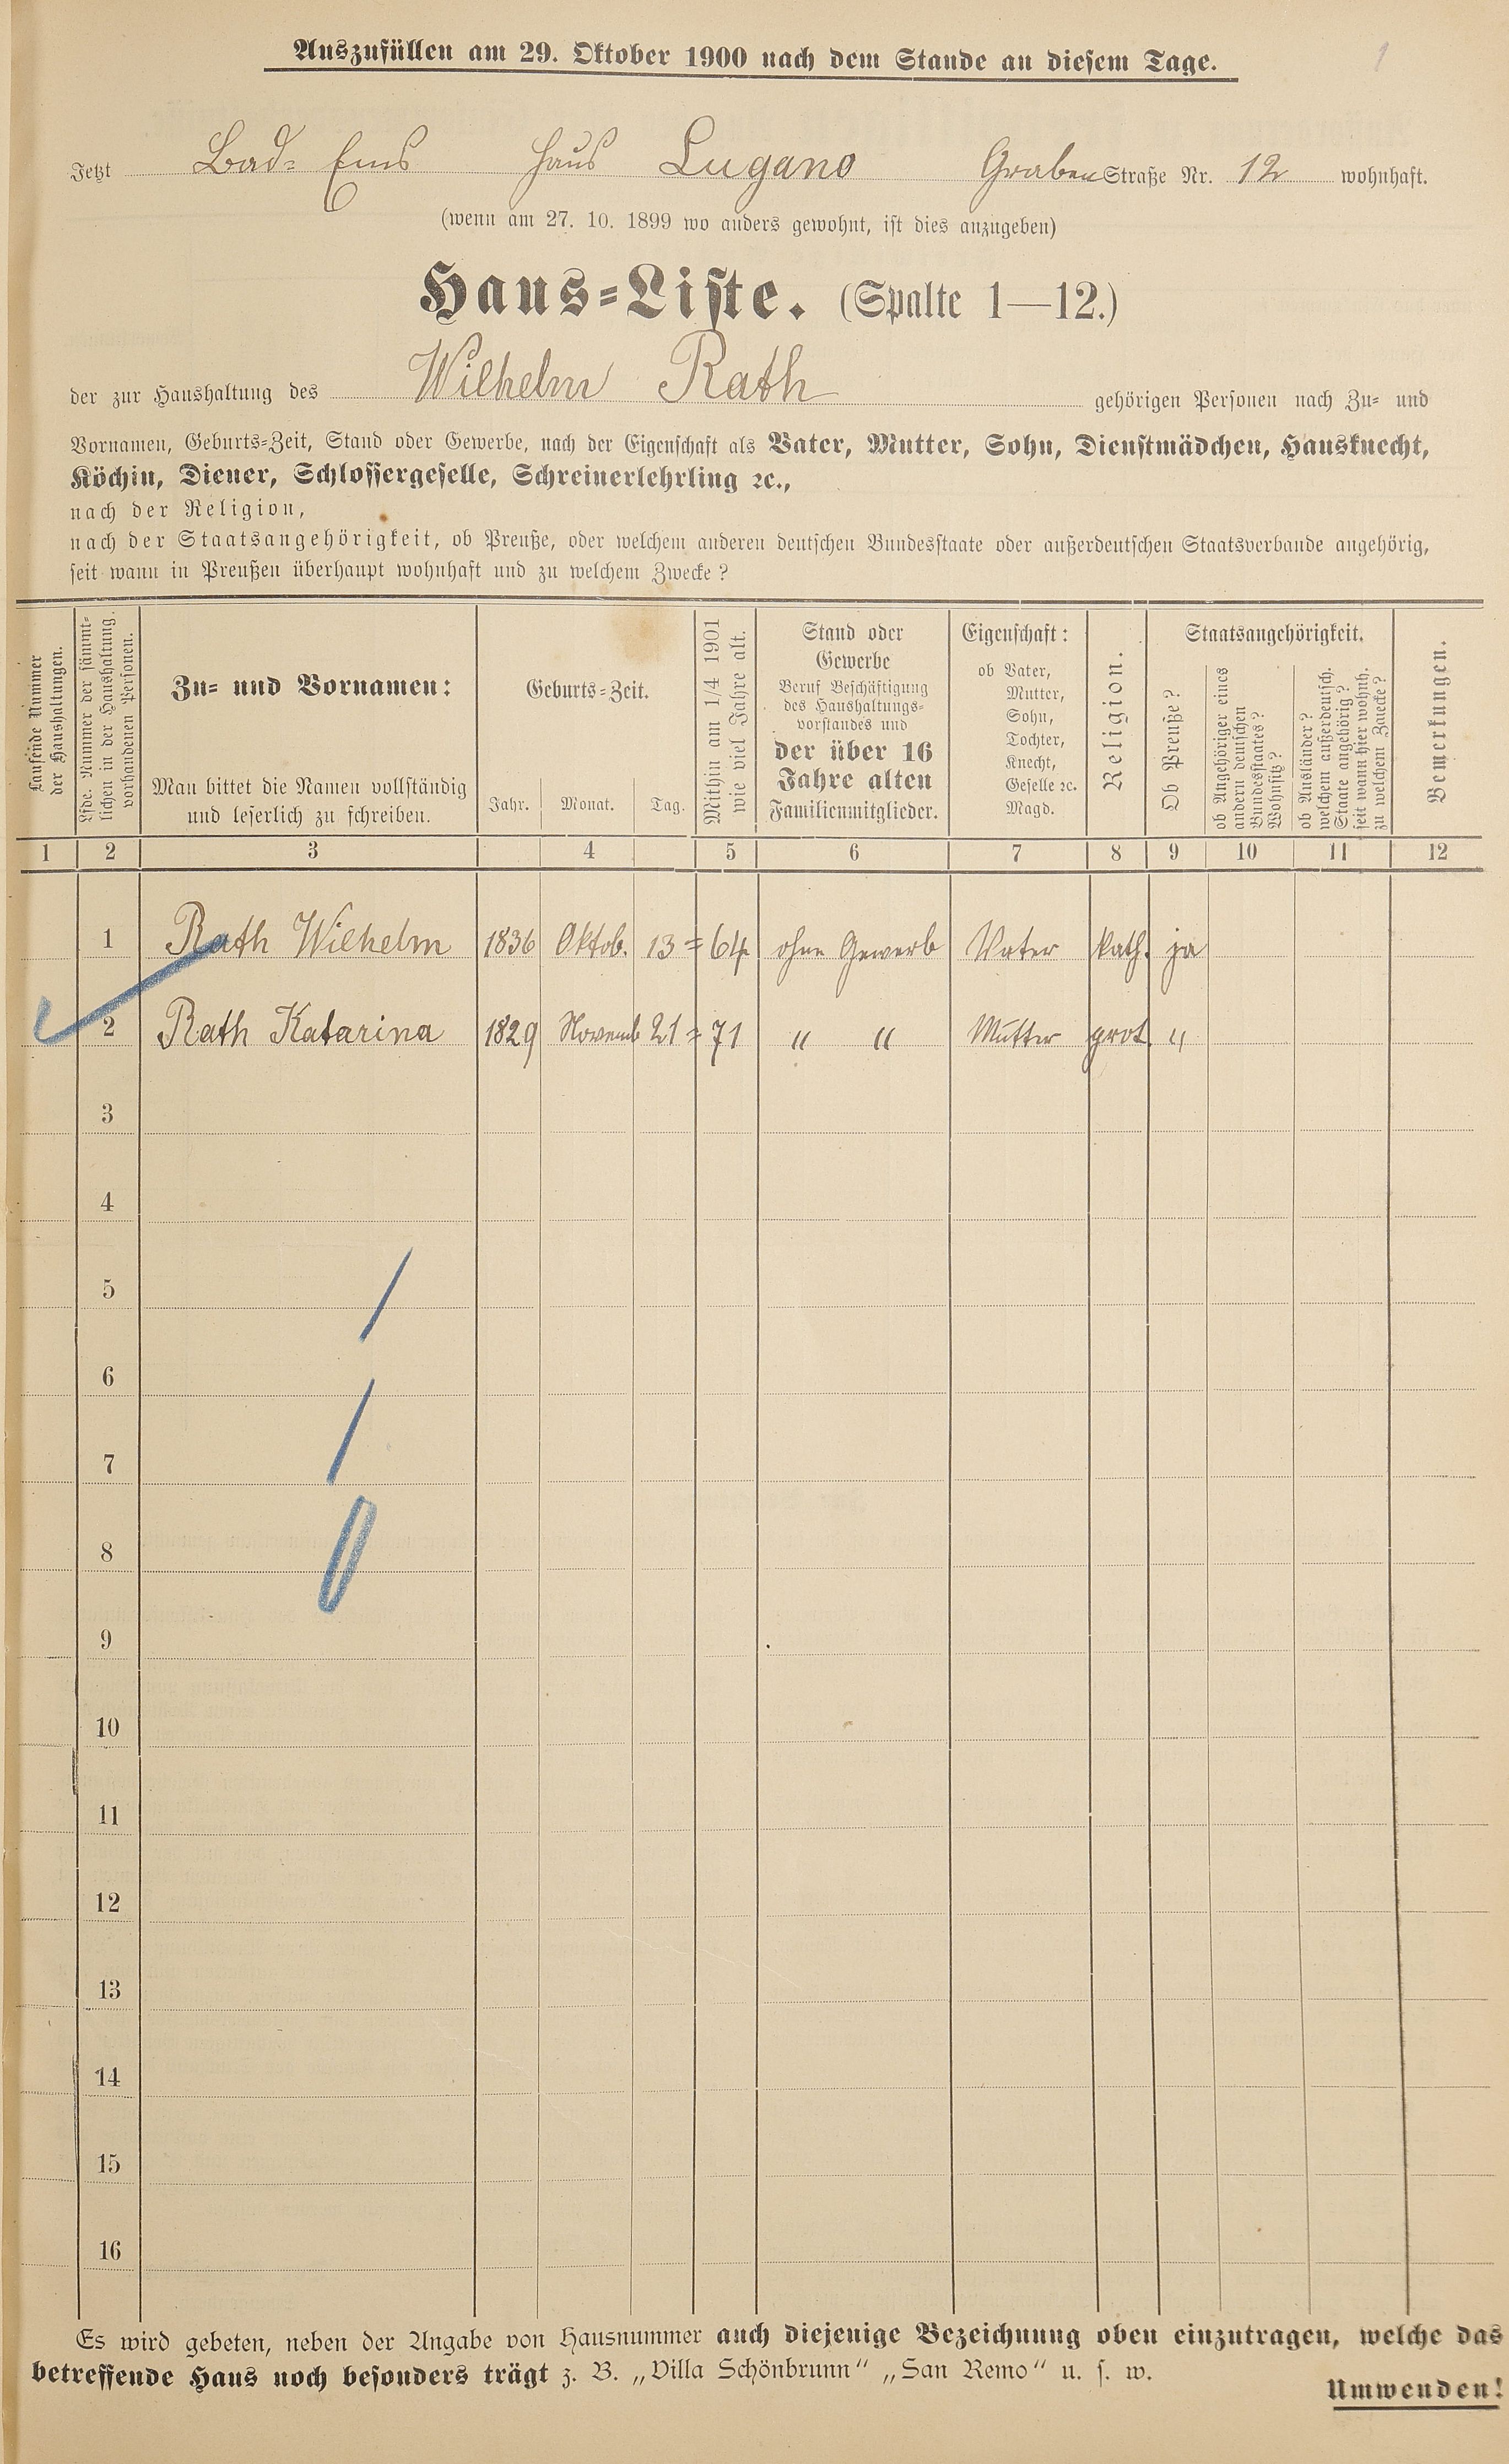 Auszufüllen am 29. Oktober 1900 nach dem Stande an diesem Tage.
1
Jetzt Bad-Ems Haus Lugano Graben Straße Nr. 12 wohnhaft.
(wenn am 27. 10. 1899 wo anders gewohnt, ist dies anzugeben)
Haus-Liste. (Spalte 1—12.)
der zur Haushaltung des Wilhelm Rath gehörigen Personen nach Zu- und
Vornamen, Geburts-Zeit, Stand oder Gewerbe, nach der Eigenschaft als Vater, Mutter, Sohn, Dienstmädchen, Hausknecht,
Köchin, Diener, Schlossergeselle, Schreinerlehrling ꝛc.,
nach der Religion,
nach der Staatsangehörigkeit, ob Preuße, oder welchem anderen deutschen Bundesstaate oder außerdeutschen Staatsverbande angehörig,
seit wann in Preußen überhaupt wohnhaft und zu welchem Zwecke?
Laufende Nummer
der Haushaltungen.
Lfde. Nummer der sämmt-
lichen in der Haushaltung
vorhandenen Personen.
Zu- und Vornamen:
Man bittet die Namen vollständig
und leserlich zu schreiben.
Geburts-Zeit.
Jahr. Monat. Tag.
Mithin am 1/4 1901
wie viel Jahre alt.
Stand oder
Gewerbe
Beruf Beschäftigung
des Haushaltungs-
vorstandes und
der über 16
Jahre alten
Familienmitglieder.
Eigenschaft:
ob Vater,
Mutter,
Sohn,
Tochter,
Knecht,
Geselle ꝛc.
Magd.
Religion.
Staatsangehörigkeit.
Ob Preuße?
ob Angehöriger eines
andern deutschen
Bundesstaates?
Wohnsitz?
ob Ausländer?
welchem außerdeutsch.
Staate angehörig?
seit wann hier wohnh.
zu welchem Zwecke?
Bemerkungen.
1 2 3 4 5 6 7 8 9 10 11 12
1 Rath Wilhelm 1836 Oktob. 13 = 64 ohne Gewerb Vater kath. ja
2 Rath Katarina 1829 Novemb 21 = 71 " " Mutter prot. "
3
4
5
6
7
8
9
10
11
12
13
14
15
16
Es wird gebeten, neben der Angabe von Hausnummer auch diejenige Bezeichnung oben einzutragen, welche das
betreffende Haus noch besonders trägt z. B. „Villa Schönbrunn“ „San Remo“ u. s. w.
Umwenden!